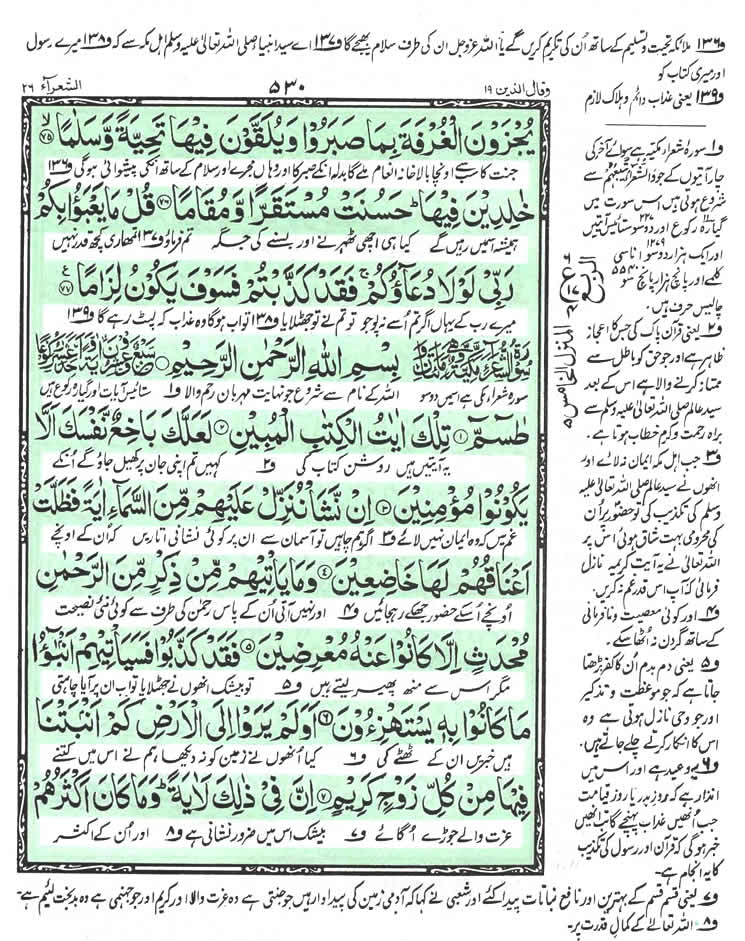 و۱۳۶ ملائکہ تحیت و تسلیم کے ساتھ اُن کی تکریم کریں گے یا اللہ عزوجل ان کی طرف سلام بھیجے گا و۱۳۷ اے سید انبیا صلی اللہ تعالیٰ علیہ وسلم اہل مکہ سے کہ و۱۳۸ میرے رسول
اور میری کتاب کو
و۱۳۹ یعنی عذاب دائم و ہلاک لازم
وقال الذين ۱۹
۵۳۰
الشعرآء ۲۶
يُجْزَوْنَ الْغُرْفَةَ بِمَا صَبَرُوْا وَيُلَقَّوْنَ فِيْهَا تَحِيَّةً وَّسَلٰمًا ﴿۷۵﴾ۙ
جنت کا سب سے اونچا بالاخانہ انعام ملے گا بدلہ ان کے صبر کا اور وہاں مجرے اور سلام کے ساتھ انکی پیشوائی ہوگی و۱۳۶
خٰلِدِيْنَ فِيْهَا ؕ حَسُنَتْ مُسْتَقَرًّا وَّمُقَامًا ﴿۷۶﴾ قُلْ مَا يَعْبَؤُا بِكُمْ
ہمیشہ اسمیں رہیں گے کیا ہی اچھی ٹھہرنے اور بسنے کی جگہ تم فرماؤ و۱۳۷ تمھاری کچھ قدر نہیں
رَبِّيْ لَوْلَا دُعَآؤُكُمْ ۚ فَقَدْ كَذَّبْتُمْ فَسَوْفَ يَكُوْنُ لِزَامًا ﴿۷۷﴾
میرے رب کے یہاں اگر تم اُسے نہ پوجو تو تم نے تو جھٹلایا و۱۳۸ تو اب ہوگا وہ عذاب کہ لپٹ رہے گا و۱۳۹
بِسْمِ اللهِ الرَّحْمٰنِ الرَّحِيْمِ
سورہ شعراء مکی ہے اسمیں دو سو اللہ کے نام سے شروع جو نہایت مہربان رحم والا و۱ ستائیس آیات اور گیارہ رکوع ہیں
طٰسٓمّٓ ﴿۱﴾ تِلْكَ اٰيٰتُ الْكِتٰبِ الْمُبِيْنِ ﴿۲﴾ لَعَلَّكَ بَاخِعٌ نَّفْسَكَ اَلَّا
یہ آیتیں ہیں روشن کتاب کی و۲ کہیں تم اپنی جان پر کھیل جاؤ گے اُنکے
يَكُوْنُوْا مُؤْمِنِيْنَ ﴿۳﴾ اِنْ نَّشَاْ نُنَزِّلْ عَلَيْهِمْ مِّنَ السَّمَآءِ اٰيَةً فَظَلَّتْ
غم میں کہ وہ ایمان نہیں لائے و۳ اگر ہم چاہیں تو آسمان سے ان پر کوئی نشانی اتاریں کہ اُن کے اونچے
اَعْنَاقُهُمْ لَهَا خَاضِعِيْنَ ﴿۴﴾ وَمَا يَاْتِيْهِمْ مِّنْ ذِكْرٍ مِّنَ الرَّحْمٰنِ
اونچے اُسکے حضور جھکے رہ جائیں و۴ اور نہیں آتی اُن کے پاس رحمٰن کی طرف سے کوئی نئی نصیحت
مُحْدَثٍ اِلَّا كَانُوْا عَنْهُ مُعْرِضِيْنَ ﴿۵﴾ فَقَدْ كَذَّبُوْا فَسَيَاْتِيْهِمْ اَنْۢبٰٓؤُا
مگر اس سے منھ پھیر لیتے ہیں و۵ تو بیشک انھوں نے جھٹلایا تو اب ان پر آیا چاہتی
مَا كَانُوْا بِهٖ يَسْتَهْزِءُوْنَ ﴿۶﴾ اَوَلَمْ يَرَوْا اِلَى الْاَرْضِ كَمْ اَنْۢبَتْنَا
ہیں خبریں ان کے ٹھٹھے کی و۶ کیا اُنھوں نے زمین کو نہ دیکھا ہم نے اس میں کتنے
فِيْهَا مِنْ كُلِّ زَوْجٍ كَرِيْمٍ ﴿۷﴾ اِنَّ فِيْ ذٰلِكَ لَاٰيَةً ؕ وَمَا كَانَ اَكْثَرُهُمْ
عزت والے جوڑے اُگائے و۷ بیشک اس میں ضرور نشانی ہے و۸ اور اُن کے اکثر
و۱ سورۂ شعراء مکیہ ہے سوائے آخر کی
چار آیتوں کے جو والشعراء یتبعھم سے
شروع ہوتی ہیں اس سورت میں
گیارہ رکوع اور دو سو ستائیس آیتیں
اور ایک ہزار دو سو اناسی
کلمے اور پانچ ہزار پانچ سو
چالیس حرف ہیں۔
و۲ یعنی قرآن پاک کی جس کا اعجاز
ظاہر ہے اور جو حق کو باطل سے
ممتاز کرنے والا ہے اس کے بعد
سید عالم صلی اللہ تعالیٰ علیہ وسلم سے
براہ رحمت و کرم خطاب ہوتا ہے۔
و۳ جب اہل مکہ ایمان نہ لائے اور
انھوں نے سید عالم صلی اللہ تعالیٰ علیہ
وسلم کی تکذیب کی تو حضور پر اُن
کی محرومی بہت شاق ہوئی اس پر
اللہ تعالیٰ نے یہ آیت کریمہ نازل
فرمائی کہ آپ اس قدر غم نہ کریں۔
و۴ اور کوئی معصیت و نافرمانی
کے ساتھ گردن نہ اُٹھا سکے۔
و۵ یعنی دم بدم اُن کا کفر بڑھتا
جاتا ہے کہ جو موعظت و تذکیر
اور جو وحی نازل ہوتی ہے وہ
اس کا انکار کرتے چلے جاتے ہیں۔
و۶ یہ وعید ہے اور اس میں
انذار ہے کہ روز بدر یا روز قیامت
جب اُنھیں عذاب پہنچے گا تب انھیں
خبر ہوگی کہ قرآن اور رسول کی تکذیب
کا یہ انجام ہے۔
المنزل الخامس ۵
و۷ یعنی قسم قسم کے بہترین اور نافع نباتات پیدا کئے اور شعبی نے کہا کہ آدمی زمین کی پیداوار ہیں جو جنتی ہے وہ عزت والا اور کریم اور جو جہنمی ہے وہ بدبخت لئیم ہے۔
و۸ اللہ تعالیٰ کے کمالِ قدرت پر۔